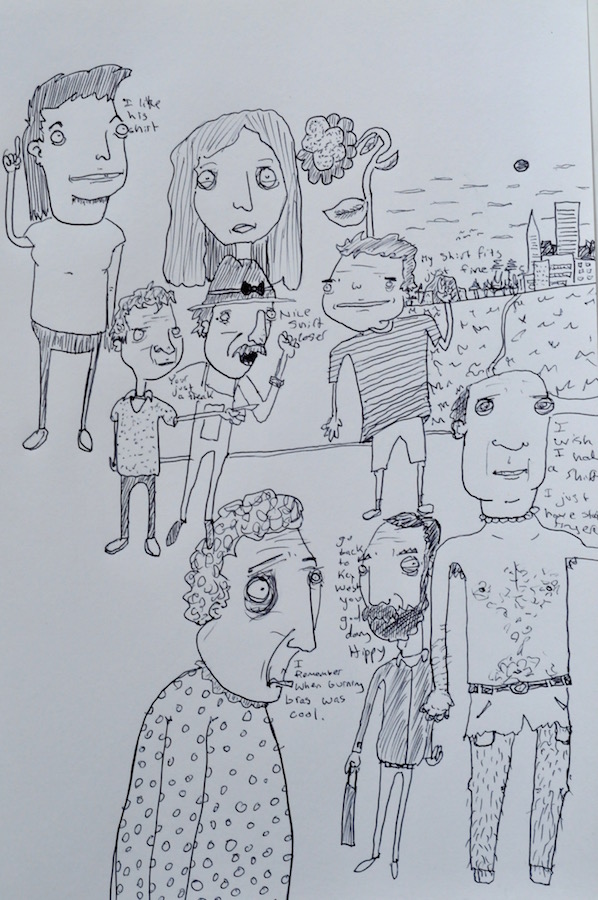 I like
his
shirt
My shirt fits
just
fine
Nice
shirt
loser
Your
just
a freak
I
wish
I had
a shirt
I just
have
fingers
go
back
to
Key
West
you
god
dang
Hippy
I
Remember
when burning
bras was
cool.